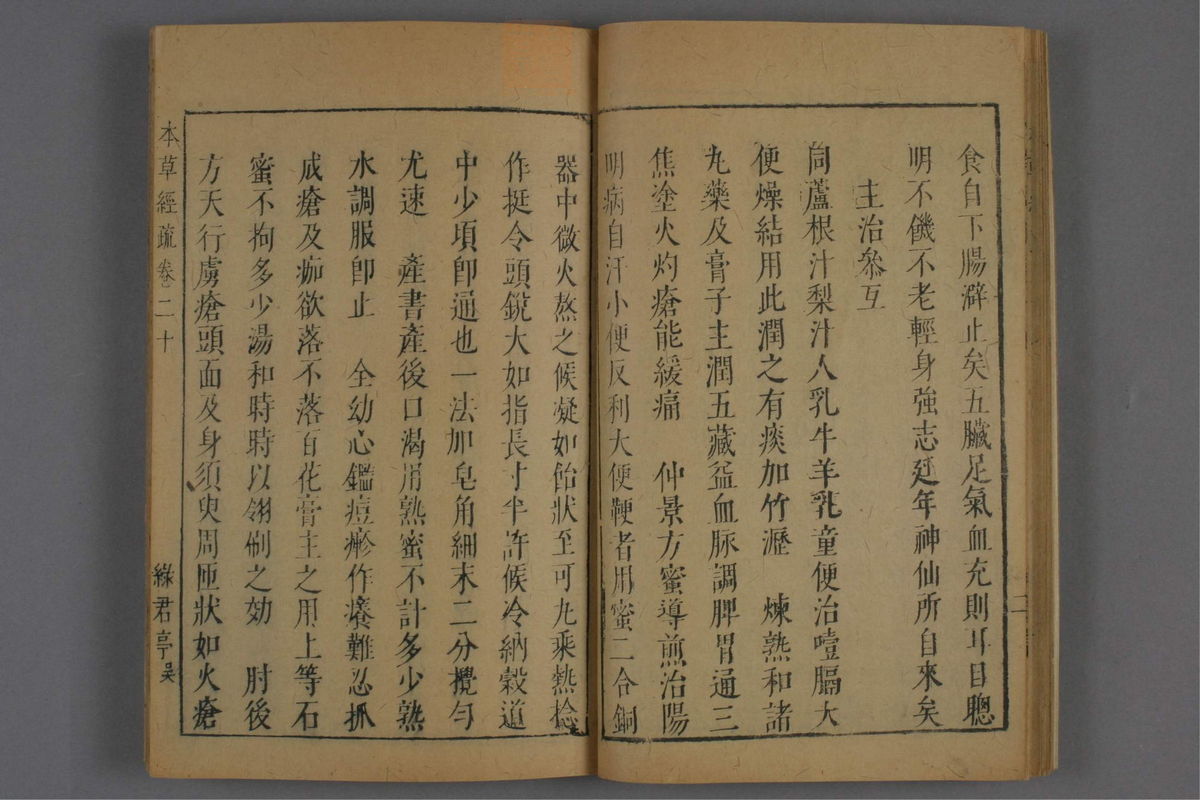 食自下腸澼止矣五臟足氣血充則耳目聰
明不饑不老輕身強志延年神仙所自來矣
主治叅互
同蘆根汁梨汁人乳牛羊乳童便治噎膈大
便燥結用此潤之有痰加竹瀝　煉熟和諸
丸藥及膏子主潤五藏益血脉調脾胃通三
焦塗火灼瘡能緩痛　仲景方蜜導煎治陽
明病自汗小便反利大便鞕者用蜜二合銅
器中微火熬之候凝如飴狀至可丸乘熱捻
作挺令頭銳大如指長寸半許候冷納穀道
中少頃即通也一法加皂角細末二分攪勻
尤速　產書產後口渴用熟蜜不計多少熟
水調服卽止　全幼心鑑痘瘮作癢難忍抓
成瘡及痂欲落不落百花膏主之用上等石
蜜不拘多少湯和時時以翎刷之効　肘後
方天行虜瘡頭面及身須臾周匝狀如火瘡
本草經疏　卷二十
綠君亭吳